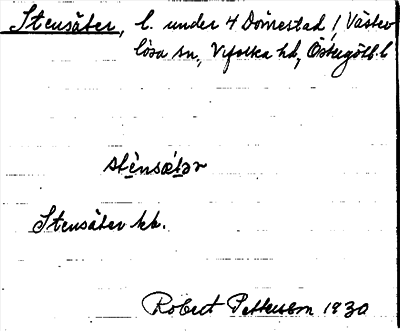 Stensäter, l. under 4 Dömestad, Väster
lösa sn, Vifolka hd, Östergötl. l.
stènsæ̀tər
Stensäter kk.
Robert Pettersson 1930